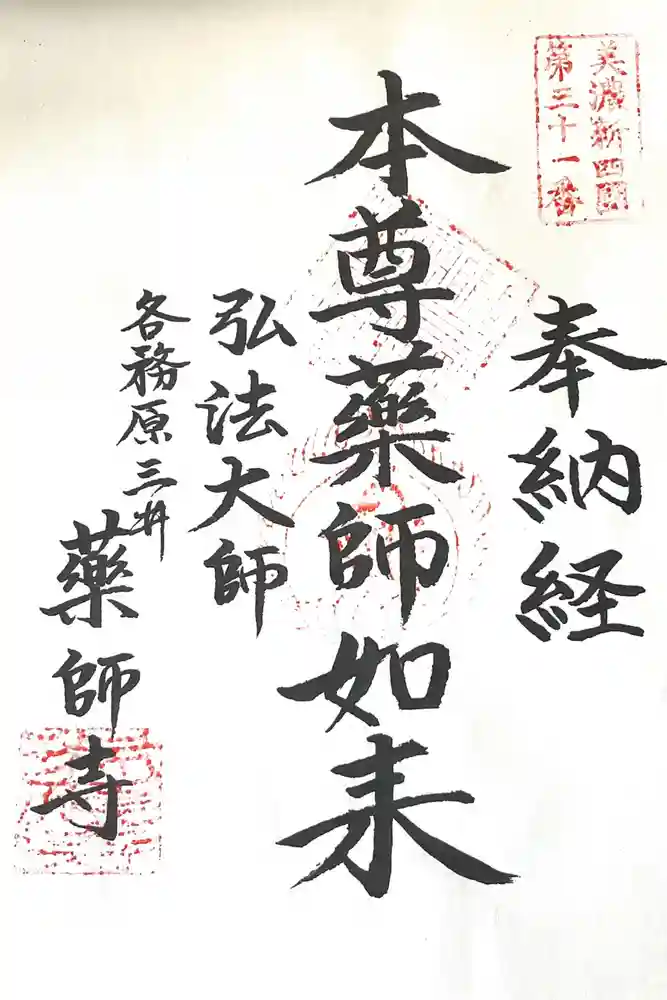 美濃新四国
第三十一番
奉納経
本尊薬師如来
弘法大師
各務原三井
薬師寺